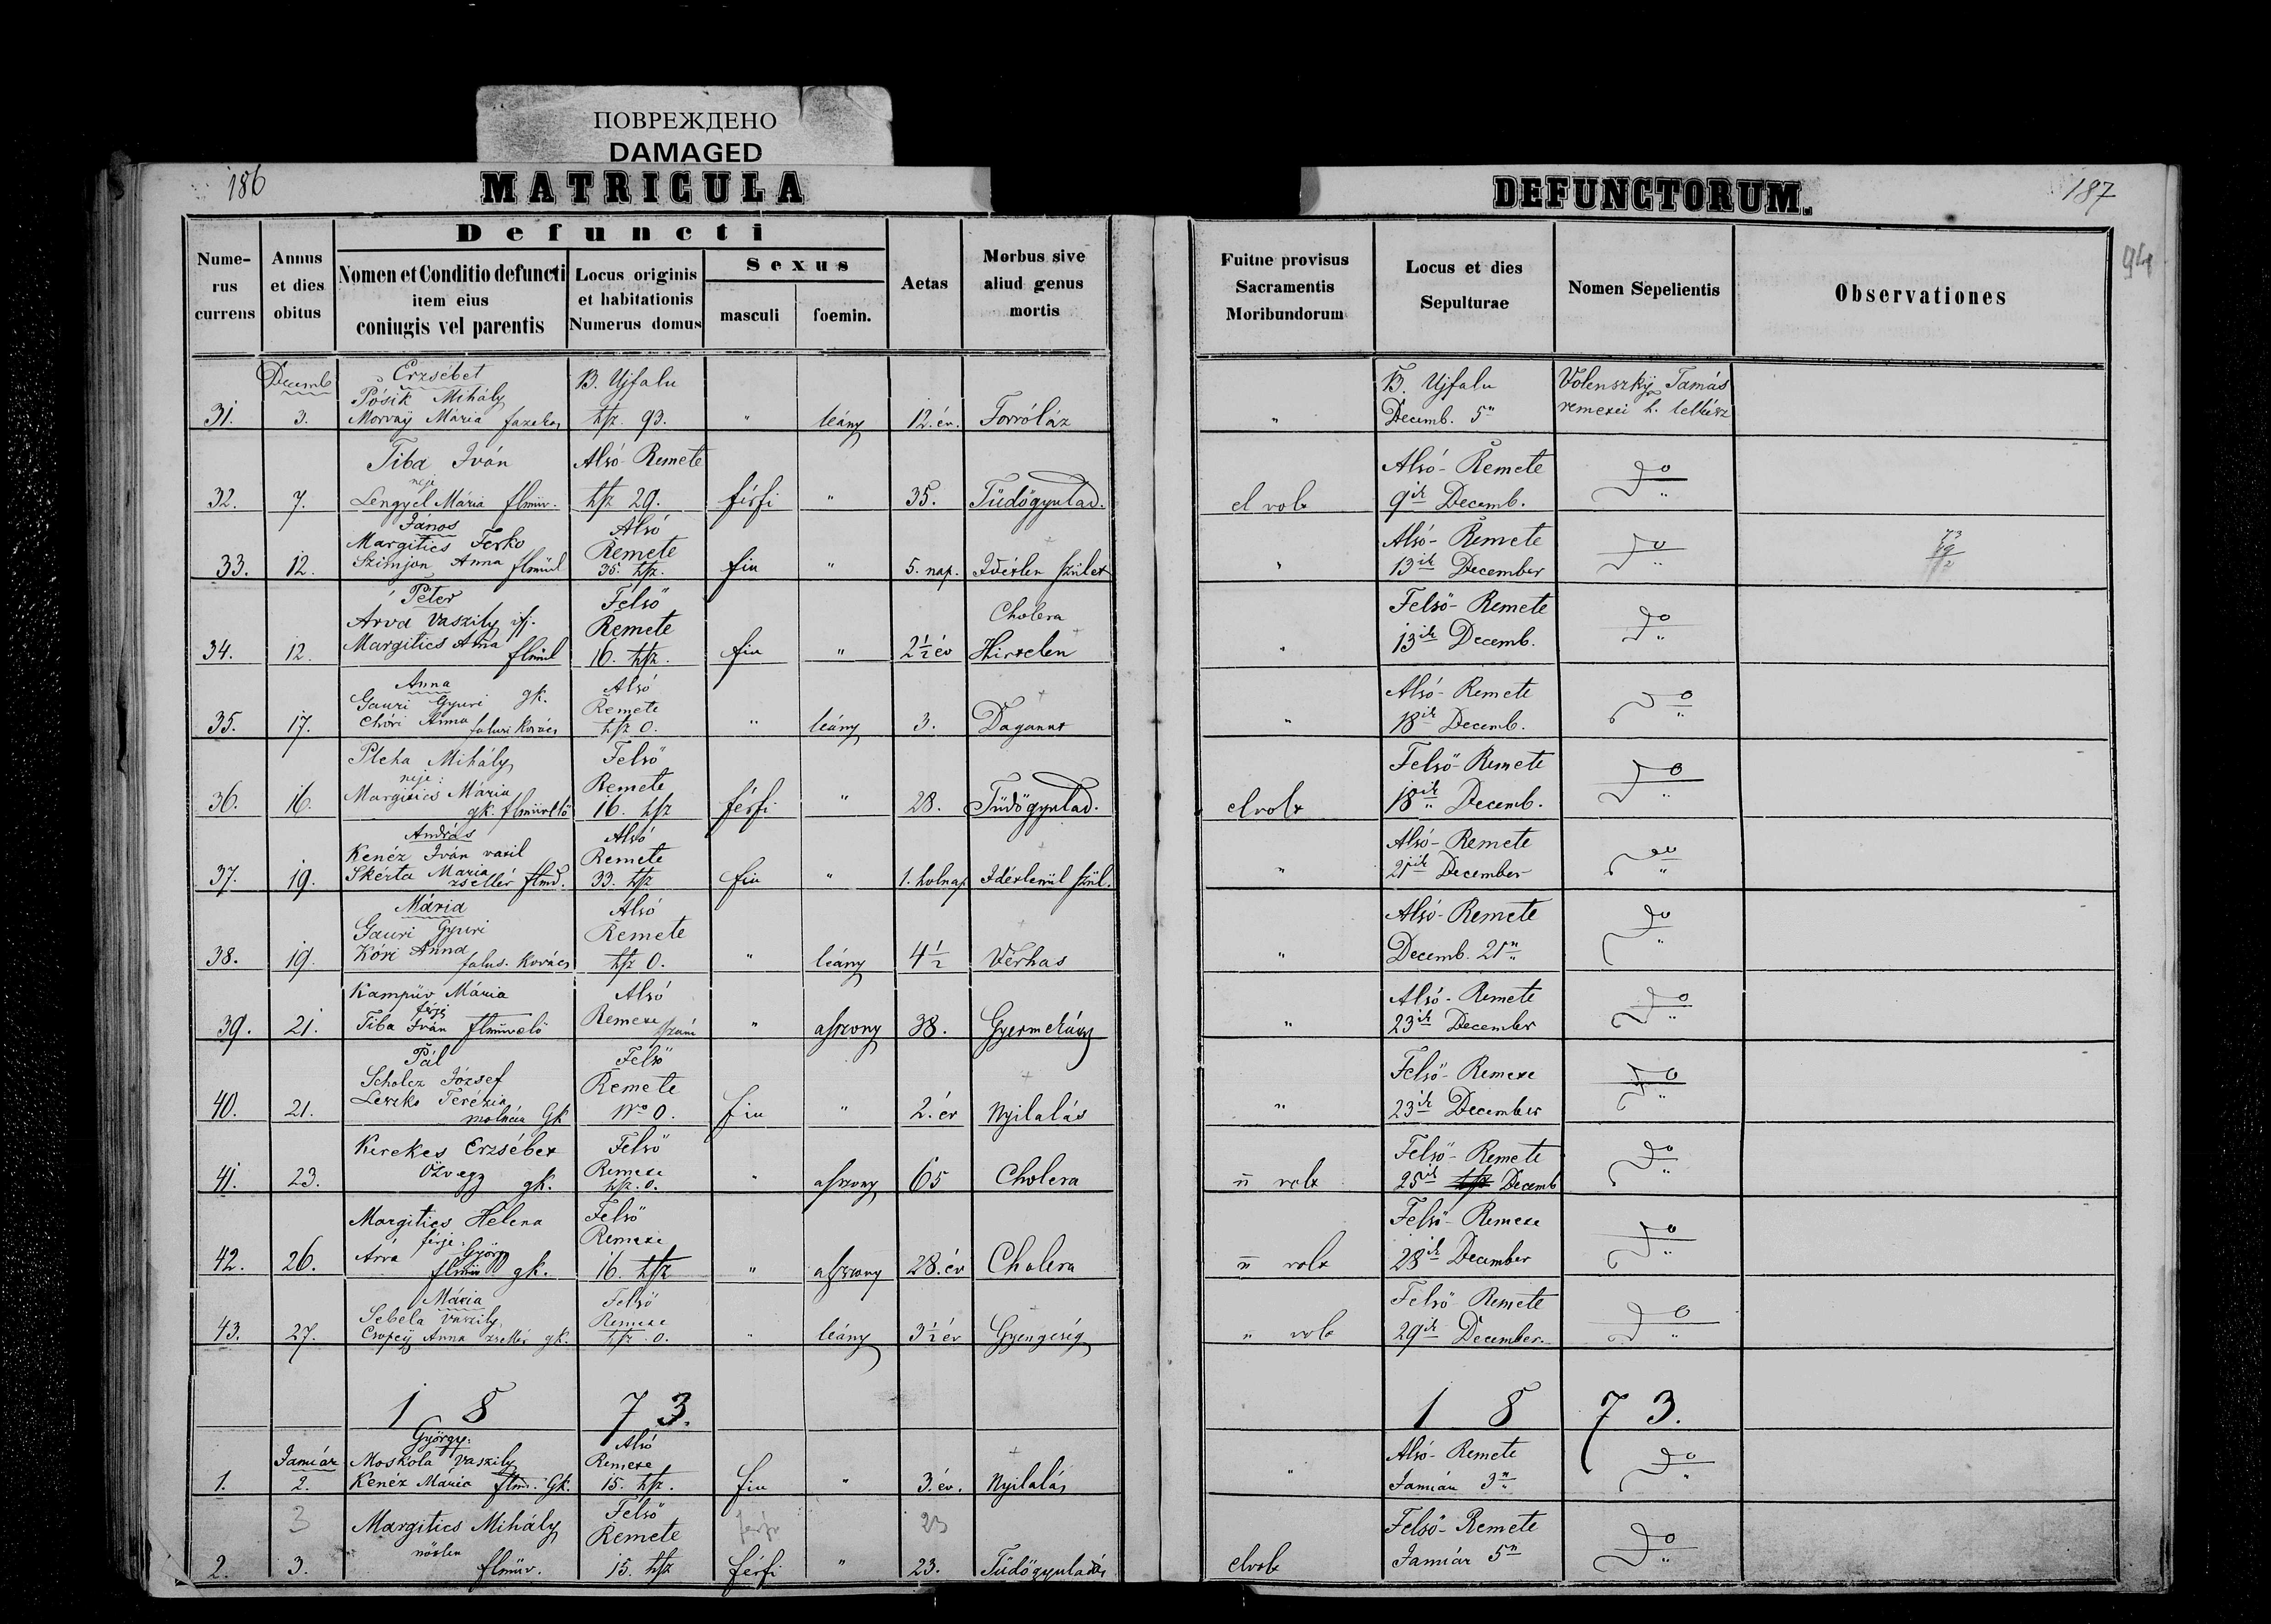 ПОВРЕЖДЕНО
DAMAGED
186
MATRICULA
DEFUNCTORUM.
187
94
Defuncti
Nume-
rus
currens
Annus
et dies
obitus
Nomen et Conditio defuncti
item eius
coniugis vel parentis
Locus originis
et habitationis
Numerus domus
Sexus
masculi
foemin.
Aetas
Morbus sive
aliud genus
mortis
Fuitne provisus
Sacramentis
Moribundorum
Locus et dies
Sepulturae
Nomen Sepelientis
Observationes
Decemb
Erzsébet
B. Ujfalu
B. Ujfalu
Volenszky Tamás
Pósik Mihály
31. 3. Morvay Mária fazekas hsz. 93. " leány 12. év. Forróláz " Decemb. 5n remetei h. lelkész
Tiba Iván Alsó-Remete Alsó-Remete do
neje
32. 7. Lengyel Mária flmüv. hsz 29. férfi " 35. Tüdőgyulad. el volt 9ik Decemb. "
János Alsó
Margitics Ferko Remete Alsó-Remete do
33. 12. Szimjon Anna flmüv 35. hsz. fiu " 5. nap. Idétlen szület " 13ik December "
Péter Felső Cholera Felső-Remete do
Arva Vaszily ifj. Remete
34. 12. Margitics Anna flmüv 16. hsz. fiu " 2 1/2 év Hirtelen " 13ik Decemb. "
Anna Alsó Alsó-Remete do
Gauri Gyuri gk. Remete
35. 17. Chóri Anna falusi kovács hsz 0. " leány 3. Daganat " 18ik Decemb. "
Pleha Mihály Felső Felső-Remete do
neje: Remete
36. 16. Margitics Mária gk. flmüvelő 16. hsz férfi " 28. Tüdőgyulad. elvolt 18ik Decemb. "
András Alsó Alsó-Remete do
Kenéz Iván vazil Remete
37. 19. Skérta Maria zsellér flmű. 33. hsz fiu " 1. holnap Idétlenül szül. " 21ik December "
Mária Alsó Alsó-Remete do
Gauri Gyuri Remete
38. 19. Kóri Anna falus. kovács hsz 0. " leány 4 1/2 Vérhas " Decemb. 21n "
Kampüv Mária Alsó Alsó-Remete do
férje
39. 21. Tiba Iván flmüvelő Remete " aszony 38. Gyermekágy " 23ik December "
Pál Felső Felső-Remete do
Scholcz József Remete
40. 21. Leszko Terézia molnár Gk No 0. fiu " 2. év Nyilalás " 23ik December "
Kerekes Erzsébet Felső Felső-Remete do
41. 23. özvegy gk. Remete hsz. 0. " aszony 65 Cholera " volt 25ik Decemb "
Margitics Helena Felső Felső-Remete do
férje: Remete
42. 26. Arva György flmüv gk. 16. hsz " aszony 28. év Cholera " volt 28ik December "
Mária Felső Felső-Remete do
Sebela Vaszily Remete
43. 27. Csopey Anna zsellér gk. hsz. 0. " leány 3 1/2 év Gyengeség " volt 29ik December. "
1 8 7 3.
1 8 7 3.
György Alsó Alsó-Remete do
Január Moskola Vaszily Remete
1. 2. Kenéz Mária flmü. Gk. 15. hsz. fiu " 3. év. Nyilalás " Január 3n "
3 Felső 23
Margitics Mihály Remete Felső-Remete do
nőslen
2. 3. flmüv. 15. hsz férfi " 23. Tüdőgyuladás elvolt Január 5n "